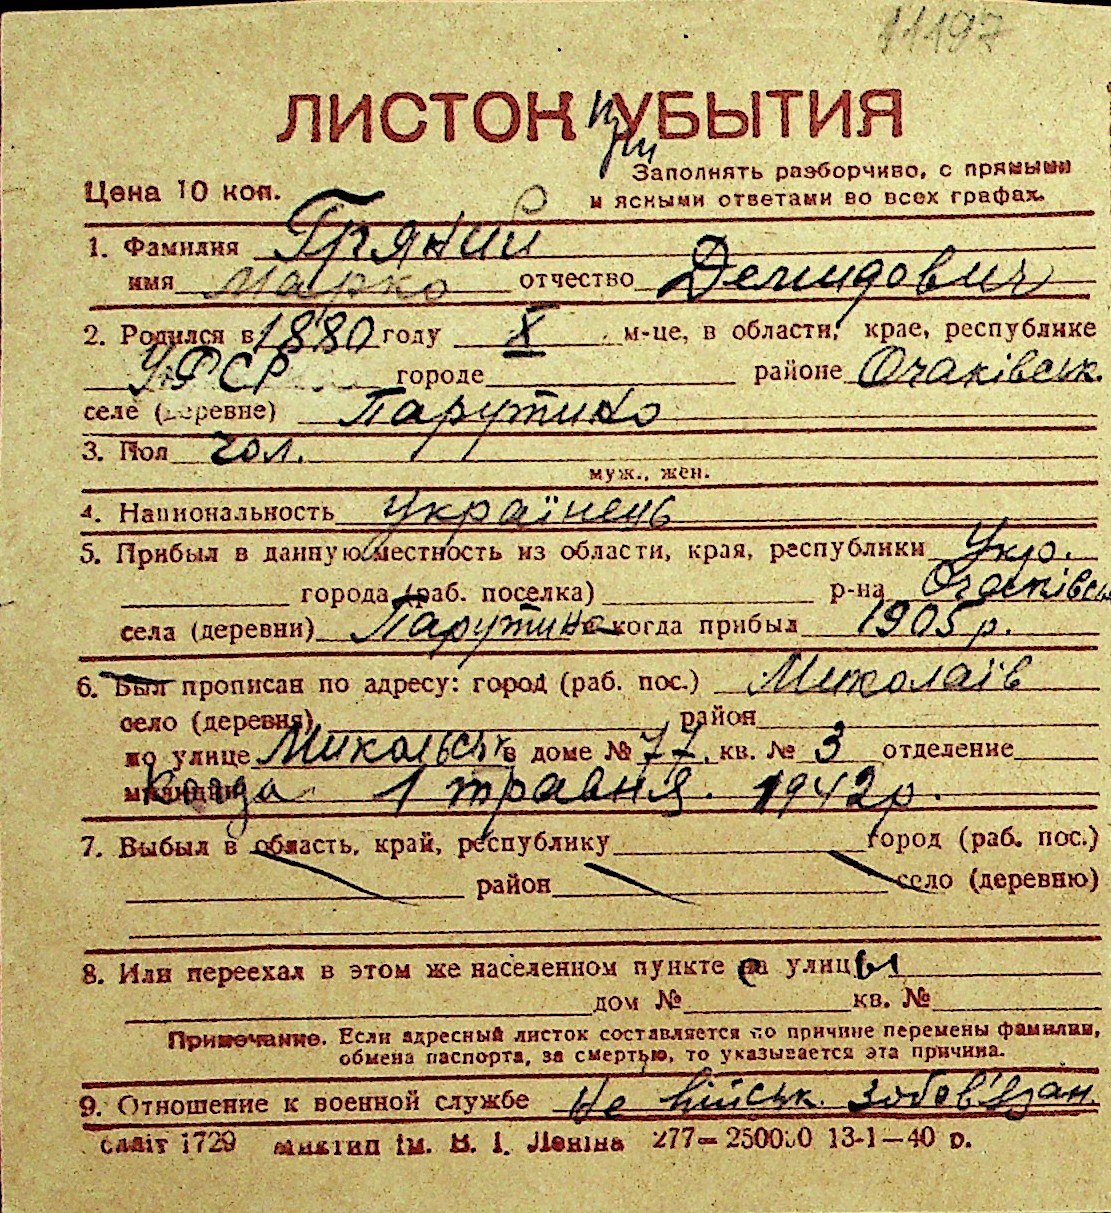 11197
ЛИСТОК при УБЫТИЯ
Заполнять разборчиво, с прямыми
Цена 10 коп. и ясными ответами во всех графах.
1. Фамилия Гряний
имя Марко отчество Демидович
2. Родился в 1880 году X м-це, в области, крае, республике
УРСР городе районе Очаківськ.
селе (деревне) Парутино
3. Пол чол.
муж., жен.
4. Национальность українець
5. Прибыл в данную местность из области, края, республики Укр.
города (раб. поселка) р-на Очаківськ
села (деревни) Парутино когда прибыл 1905 р.
6. Был прописан по адресу: город (раб. пос.) Миколаїв
село (деревня) район
по улице Микольськ в доме № 77, кв. № 3 отделение
милиции Когда 1 травня. 1942 р.
7. Выбыл в область, край, республику город (раб. пос.)
район село (деревню)
8. Или переехал в этом же населенном пункте с улицы
дом № кв. №
Примечание. Если адресный листок составляется по причине перемены фамилии,
обмена паспорта, за смертью, то указывается эта причина.
9. Отношение к военной службе не військ. зобов'язан.
1729 ім. В. І. Леніна 277— 250000 13-1—40 р.